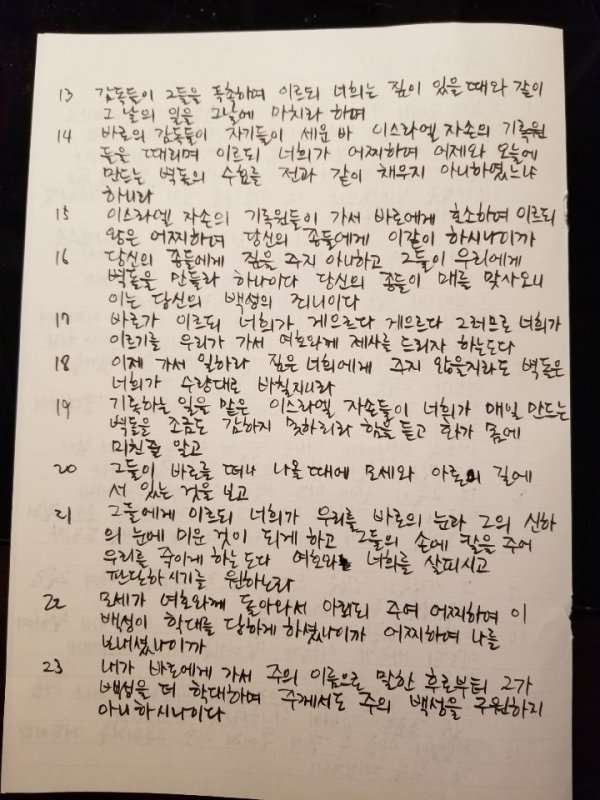 13 감독들이 그들을 독촉하며 이르되 너희는 짚이 있을 때와 같이
그 날의 일을 그날에 마치라 하며
14 바로의 감독들이 자기들이 세운 바 이스라엘 자손의 기록원
들을 때리며 이르되 너희가 어찌하여 어제와 오늘에
만드는 벽돌의 수효를 전과 같이 채우지 아니하였느냐
하니라
15 이스라엘 자손의 기록원들이 가서 바로에게 호소하여 이르되
왕은 어찌하여 당신의 종들에게 이같이 하시나이까
16 당신의 종들에게 짚을 주지 아니하고 그들이 우리에게
벽돌을 만들라 하나이다 당신의 종들이 매를 맞사오니
이는 당신의 백성의 죄니이다
17 바로가 이르되 너희가 게으르다 게으르다 그러므로 너희가
이르기를 우리가 가서 여호와께 제사를 드리자 하는도다
18 이제 가서 일하라 짚은 너희에게 주지 않을지라도 벽돌은
너희가 수량대로 바칠지니라
19 기록하는 일을 맡은 이스라엘 자손들이 너희가 매일 만드는
벽돌을 조금도 감하지 못하리라 함을 듣고 화가 몸에
미친줄 알고
20 그들이 바로를 떠나 나올 때에 모세와 아론이 길에
서 있는 것을 보고
21 그들에게 이르되 너희가 우리를 바로의 눈과 그의 신하
의 눈에 미운 것이 되게 하고 그들의 손에 칼을 주어
우리를 죽이게 하는도다 여호와는 너희를 살피시고
판단하시기를 원하노라
22 모세가 여호와께 돌아와서 아뢰되 주여 어찌하여 이
백성이 학대를 당하게 하셨나이까 어찌하여 나를
보내셨나이까
23 내가 바로에게 가서 주의 이름으로 말한 후로부터 그가
백성을 더 학대하며 주께서도 주의 백성을 구원하지
아니하시나이다